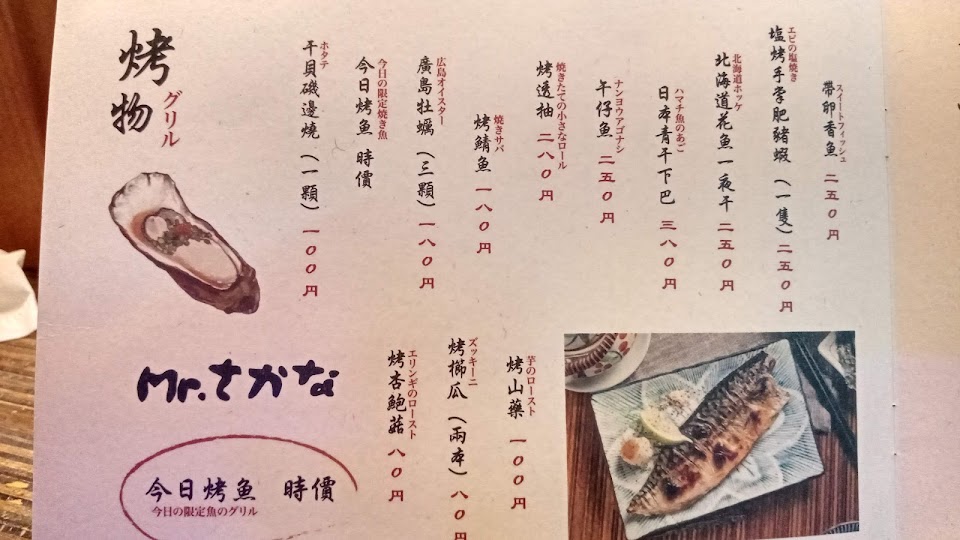 烤物
グリル
エビの塩焼き
塩烤手掌肥豬蝦（一隻）二五０円
スイートフィッシュ
帶卵香魚 二五０円
北海道ホッケ
北海道花魚一夜干 二五０円
ハマチ魚のあご
日本青干下巴 三八０円
ナンヨウアゴナシ
午仔魚 二五０円
焼きたての小さなロール
烤透抽 二八０円
焼きサバ
烤鯖魚 一八０円
広島オイスター
廣島牡蠣（三顆）一八０円
今日の限定焼き魚
今日烤魚 時價
ホタテ
干貝磯邊燒（一顆）一００円
芋のロースト
烤山藥 一００円
ズッキーニ
烤櫛瓜（兩本）八０円
エリンギのロースト
烤杏鮑菇 八０円
Mr.さかな
今日烤魚 時價
今日の限定魚のグリル